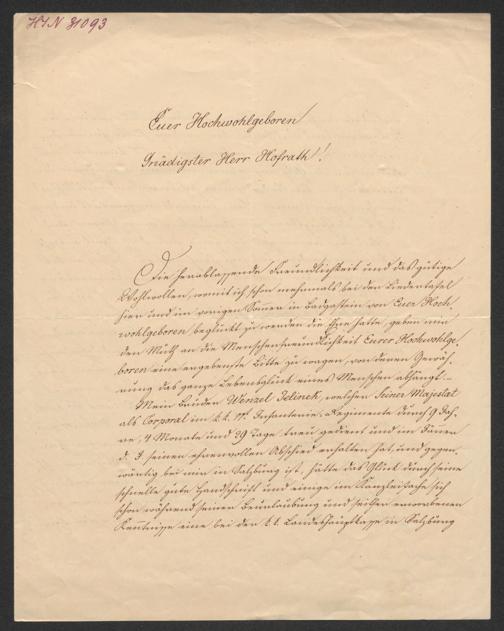 HIN 81093
Euer Hochwohlgeboren
Gnädigster Herr Hofrath!
Die herablassende Freundlichkeit und das gütige
Wohlwollen, womit ich schon mehrmals bei der Liedertafel
hier und im vorigen Sommer in Badgastein von Euer Hoch-
wohlgeboren beglückt zu werden die Ehre hatte, geben mir
den Muth an die Menschenfreundlichkeit Eurer Hochwohlge-
boren eine ergebenste Bitte zu wagen, von deren Gewäh-
rung das ganze Lebensglück eines Menschen abhängt. –
Mein Bruder Wenzel Jelinek, welcher Seiner Majestät
als Corporal im k. k. 17. Infanterie-Regimente durch 9 Jah-
re, 4 Monate und 29 Tage treu gedient und im Jänner
d. J. seinen ehrenvollen Abschied erhalten hat, und gegen-
wärtig bei mir in Salzburg ist, hatte das Glück durch seine
schnelle gute Handschrift und einige im Kanzleifache sich
schon während seiner Beurlaubung und seither erworbenen
Kenntnisse eine bei der k. k. Landeshauptkasse in Salzburg